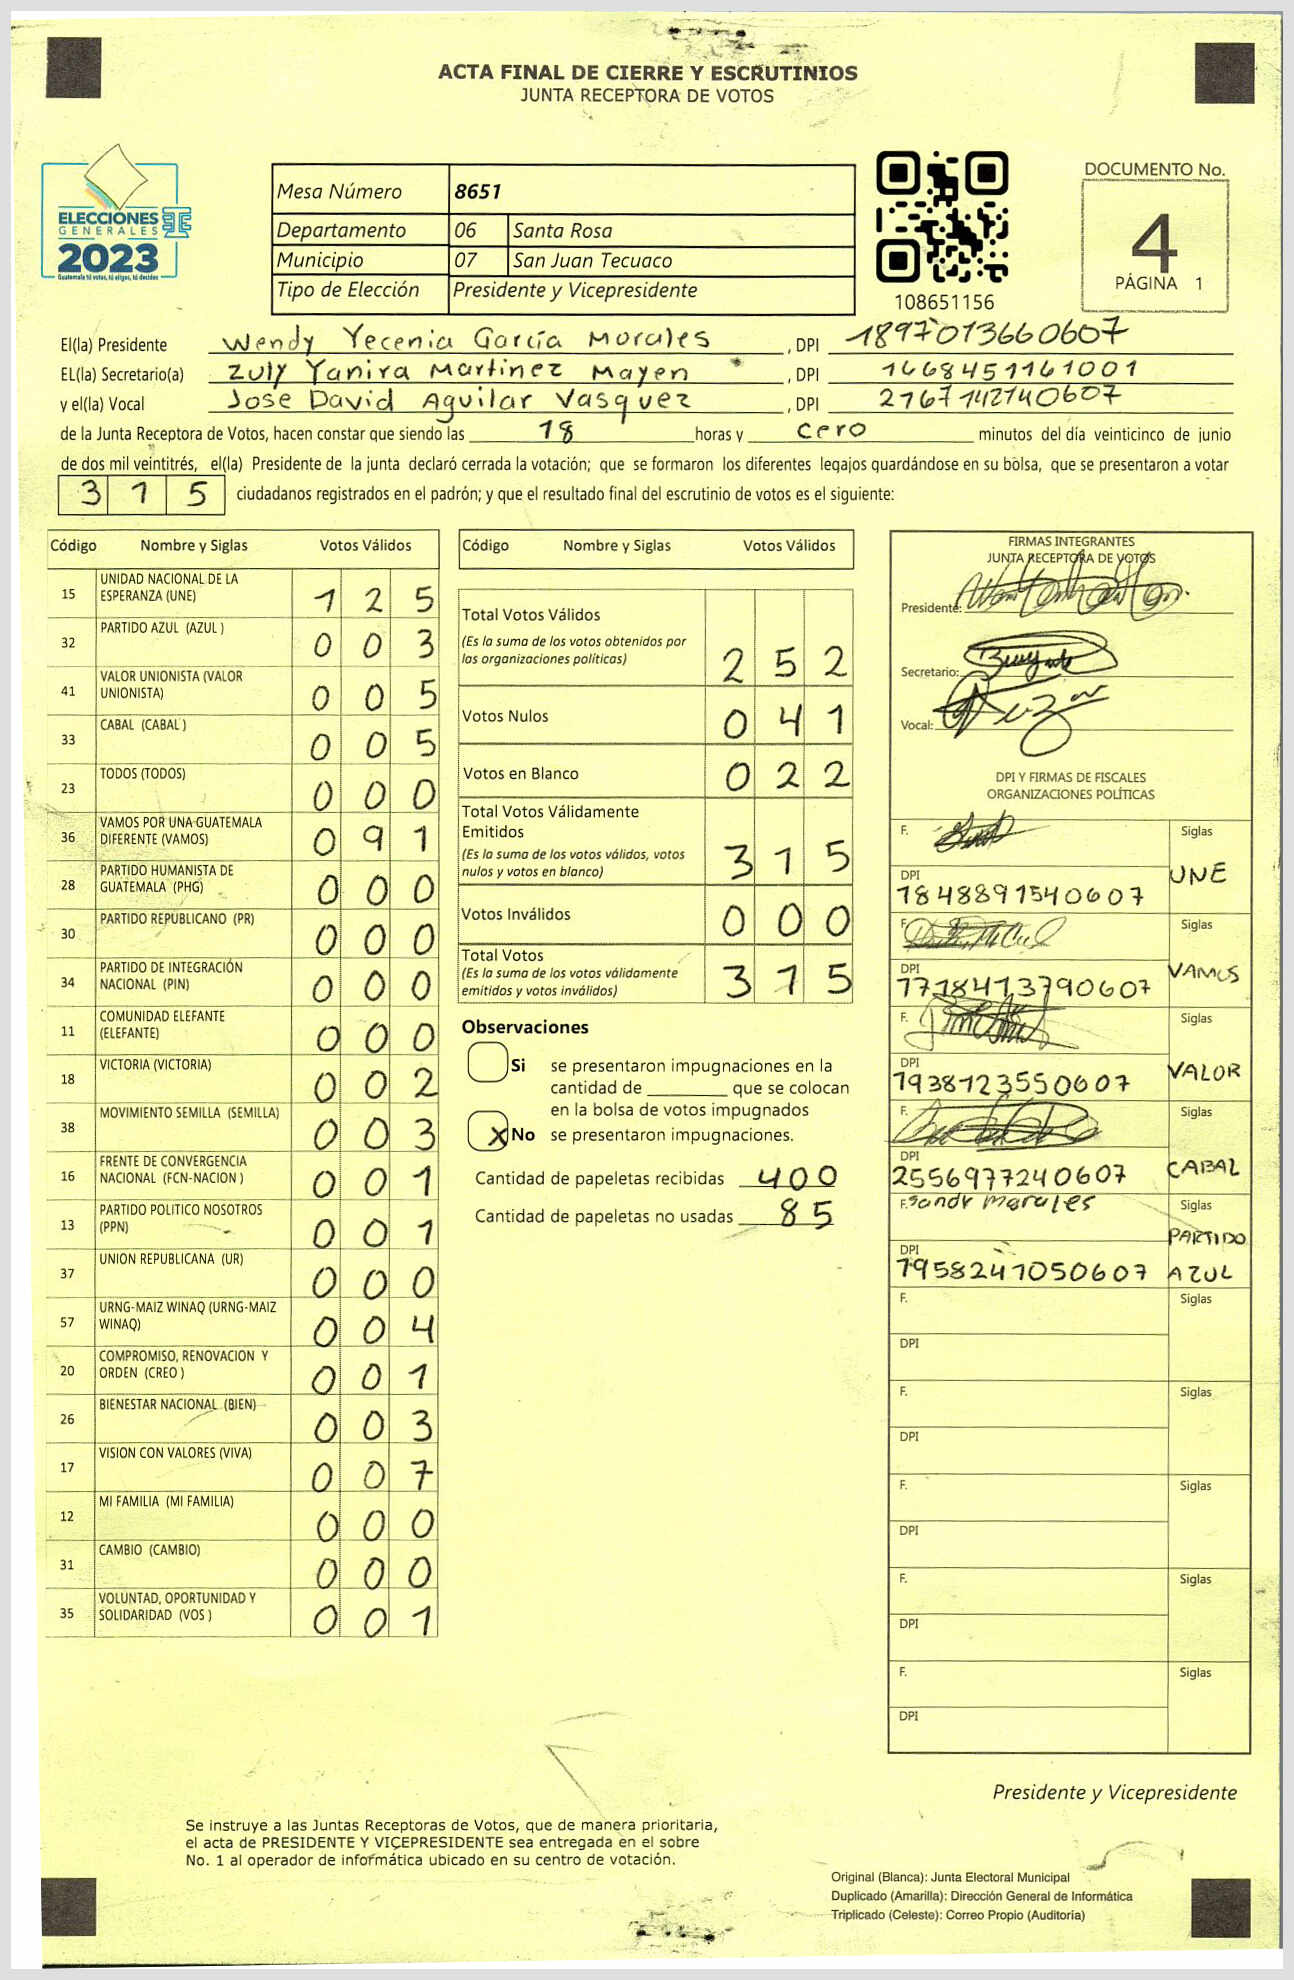 ACTA FINAL DE CIERRE Y ESCRUTINIOS
JUNTA RECEPTORA DE VOTOS
ELECCIONES
GENERALES
2023
Guatemala tú votas, tú eliges, tú decides
Mesa Número 8651
Departamento 06 Santa Rosa
Municipio 07 San Juan Tecuaco
Tipo de Elección Presidente y Vicepresidente
108651156
DOCUMENTO No.
4
PÁGINA 1
El(la) Presidente Wendy Yecenia García Morales, DPI 1897013660607
EL(la) Secretario(a) Zuly Yanira Martinez Mayen, DPI 1668451161001
y el(la) Vocal Jose David Aguilar Vasquez, DPI 2167142140607
de la Junta Receptora de Votos, hacen constar que siendo las 18 horas y cero minutos del día veinticinco de junio
de dos mil veintitrés, el(la) Presidente de la junta declaró cerrada la votación; que se formaron los diferentes legajos guardándose en su bolsa, que se presentaron a votar
315 ciudadanos registrados en el padrón; y que el resultado final del escrutinio de votos es el siguiente:
Código Nombre y Siglas Votos Válidos
15 UNIDAD NACIONAL DE LA ESPERANZA (UNE) 1 2 5
32 PARTIDO AZUL (AZUL ) 0 0 3
41 VALOR UNIONISTA (VALOR UNIONISTA) 0 0 5
33 CABAL (CABAL ) 0 0 5
23 TODOS (TODOS) 0 0 0
36 VAMOS POR UNA GUATEMALA DIFERENTE (VAMOS) 0 9 1
28 PARTIDO HUMANISTA DE GUATEMALA (PHG) 0 0 0
30 PARTIDO REPUBLICANO (PR) 0 0 0
34 PARTIDO DE INTEGRACIÓN NACIONAL (PIN) 0 0 0
11 COMUNIDAD ELEFANTE (ELEFANTE) 0 0 0
18 VICTORIA (VICTORIA) 0 0 2
38 MOVIMIENTO SEMILLA (SEMILLA) 0 0 3
16 FRENTE DE CONVERGENCIA NACIONAL (FCN-NACION ) 0 0 1
13 PARTIDO POLITICO NOSOTROS (PPN) 0 0 1
37 UNION REPUBLICANA (UR) 0 0 0
57 URNG-MAIZ WINAQ (URNG-MAIZ WINAQ) 0 0 4
20 COMPROMISO, RENOVACION Y ORDEN (CREO ) 0 0 1
26 BIENESTAR NACIONAL (BIEN) 0 0 3
17 VISION CON VALORES (VIVA) 0 0 7
12 MI FAMILIA (MI FAMILIA) 0 0 0
31 CAMBIO (CAMBIO) 0 0 0
35 VOLUNTAD, OPORTUNIDAD Y SOLIDARIDAD (VOS ) 0 0 1
Código Nombre y Siglas Votos Válidos
Total Votos Válidos
(Es la suma de los votos obtenidos por
las organizaciones políticas) 2 5 2
Votos Nulos 0 4 1
Votos en Blanco 0 2 2
Total Votos Válidamente
Emitidos
(Es la suma de los votos válidos, votos
nulos y votos en blanco) 3 1 5
Votos Inválidos 0 0 0
Total Votos
(Es la suma de los votos válidamente
emitidos y votos inválidos) 3 1 5
Observaciones
Si se presentaron impugnaciones en la
cantidad de ________ que se colocan
en la bolsa de votos impugnados
X No se presentaron impugnaciones.
Cantidad de papeletas recibidas 400
Cantidad de papeletas no usadas 85
FIRMAS INTEGRANTES
JUNTA RECEPTORA DE VOTOS
Presidente:
Secretario:
Vocal:
DPI Y FIRMAS DE FISCALES
ORGANIZACIONES POLÍTICAS
F. Siglas
DPI UNE
1848891540607
F. Siglas
DPI VAMOS
1718413790607
F. Siglas
DPI VALOR
1938123550607
F. Siglas
DPI CABAL
2556977240607
F. Sandy Morales Siglas
PARTIDO
DPI
1958247050607 AZUL
F. Siglas
DPI
F. Siglas
DPI
F. Siglas
DPI
F. Siglas
DPI
F. Siglas
DPI
Presidente y Vicepresidente
Se instruye a las Juntas Receptoras de Votos, que de manera prioritaria,
el acta de PRESIDENTE Y VICEPRESIDENTE sea entregada en el sobre
No. 1 al operador de informática ubicado en su centro de votación.
Original (Blanca): Junta Electoral Municipal
Duplicado (Amarilla): Dirección General de Informática
Triplicado (Celeste): Correo Propio (Auditoría)